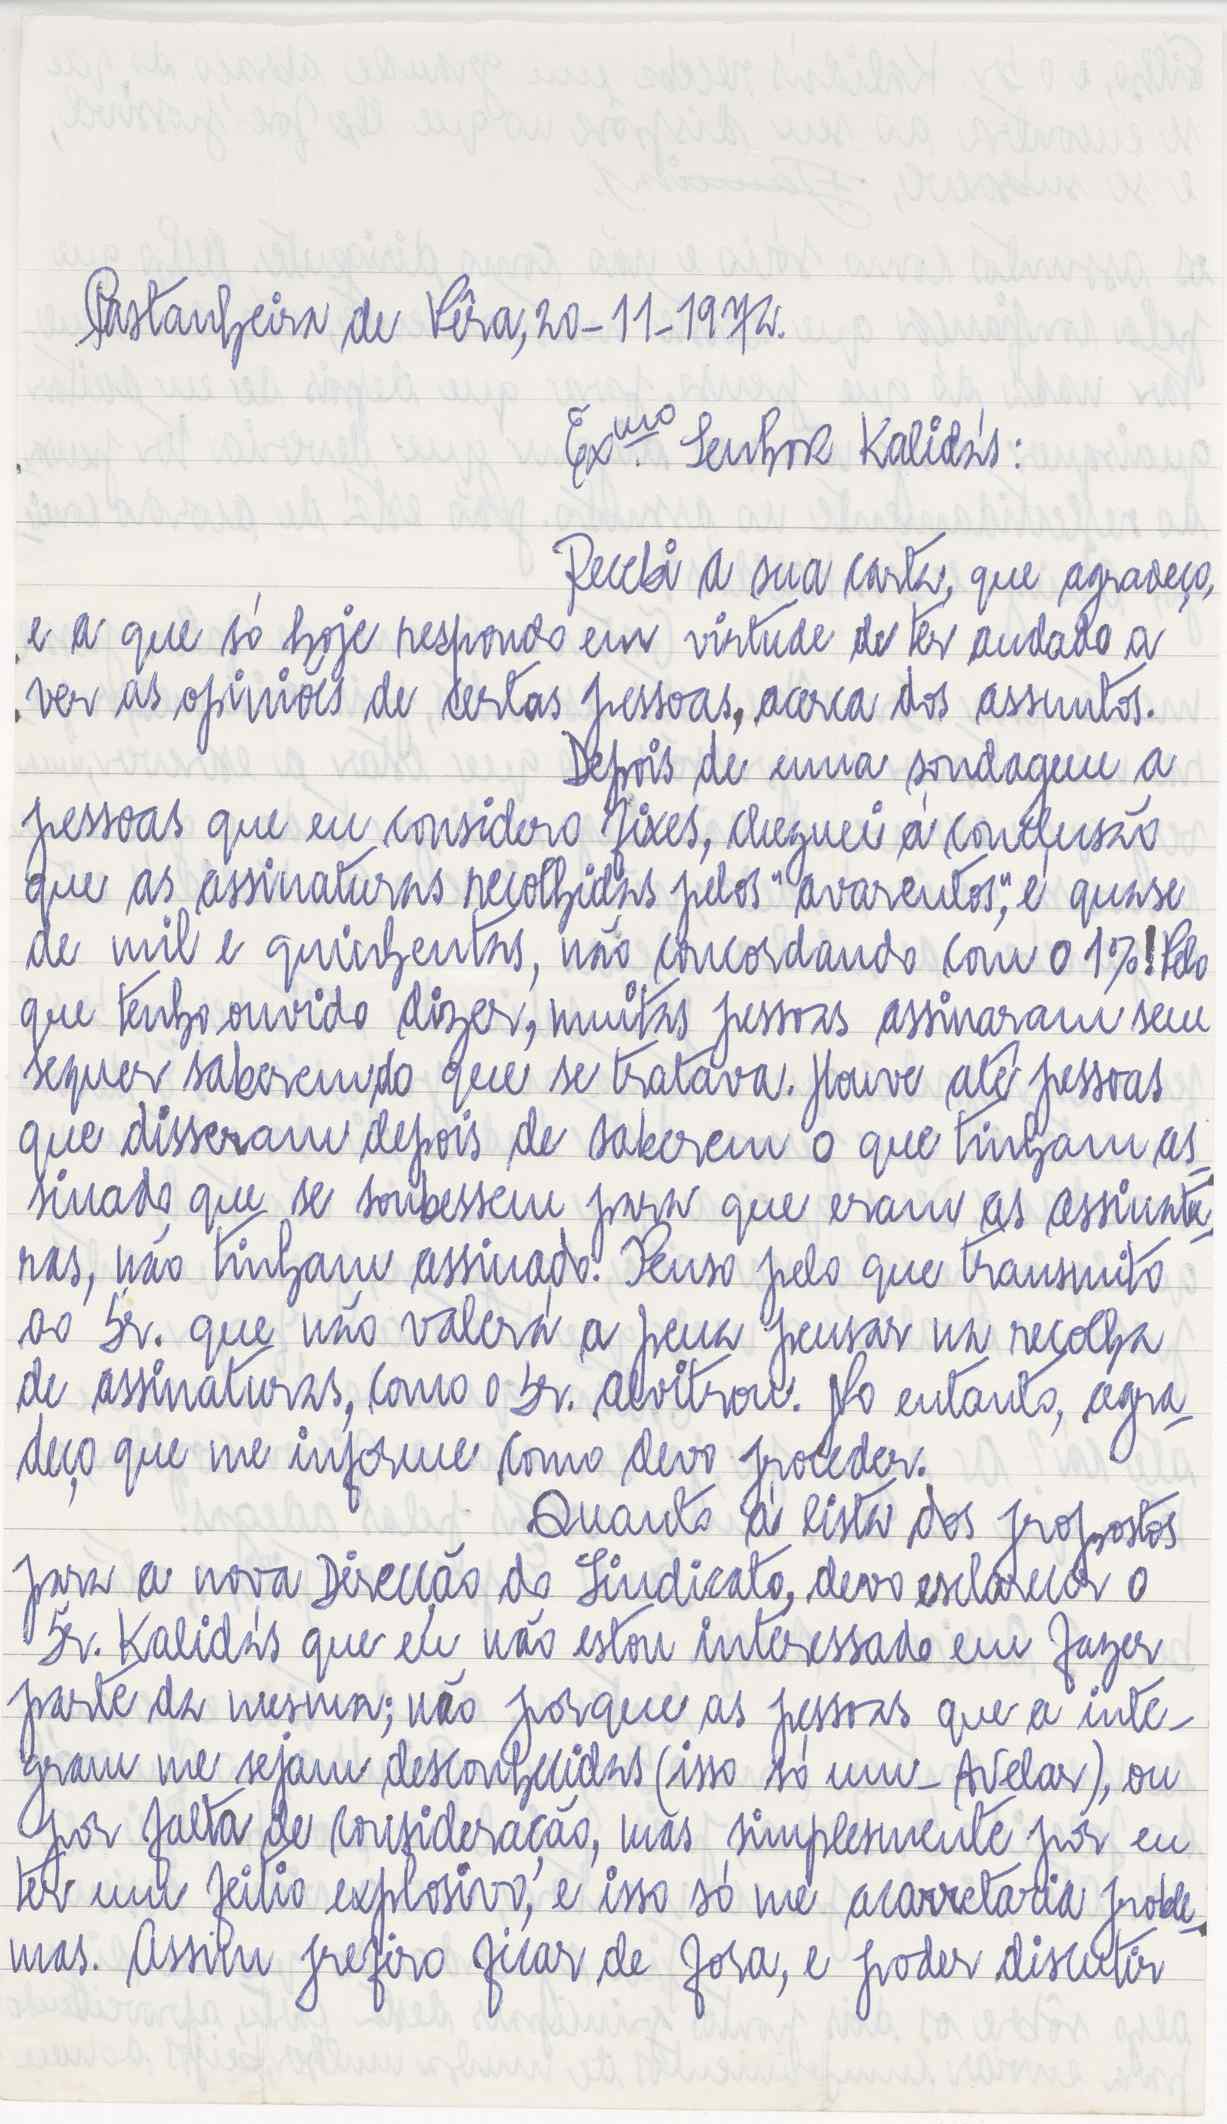 Castanheira de Pêra, 20-11-1972.
Exmo. Senhor Kalidás:
Recebi a sua carta, que agradeço,
e a que só hoje respondo em virtude de ter andado a
ver as opiniões de certas pessoas, acerca dos assuntos.
Depois de uma sondagem a
pessoas que eu considero fixes, cheguei á conclusão
que as assinaturas recolhidas pelos "avarentos", é quase
de mil e quinhentas, não concordando com o 1%! Pelo
que tenho ouvido dizer, muitas pessoas assinaram sem
sequer saberem do que se tratava. Houve até pessoas
que disseram depois de saberem o que tinham as-
sinado que se soubessem para que eram as assinatu-
ras, não tinham assinado. Penso pelo que transmito
ao Sr. que não valerá a pena pensar na recolha
de assinaturas, como o Sr. alvitrou. No entanto, agra-
deço que me informe como devo proceder.
Quanto á lista dos propostos
para a nova Direcção do Sindicato, devo esclarecer o
Sr. Kalidás que eu não estou interessado em fazer
parte da mesma; não porque as pessoas que a inte-
gram me sejam desconhecidas (isso só um - Avelar), ou
por falta de consideração, mas simplesmente por eu
ter um feitio explosivo, e isso só me acarretaria proble-
mas. Assim prefiro ficar de fora, e poder discutir